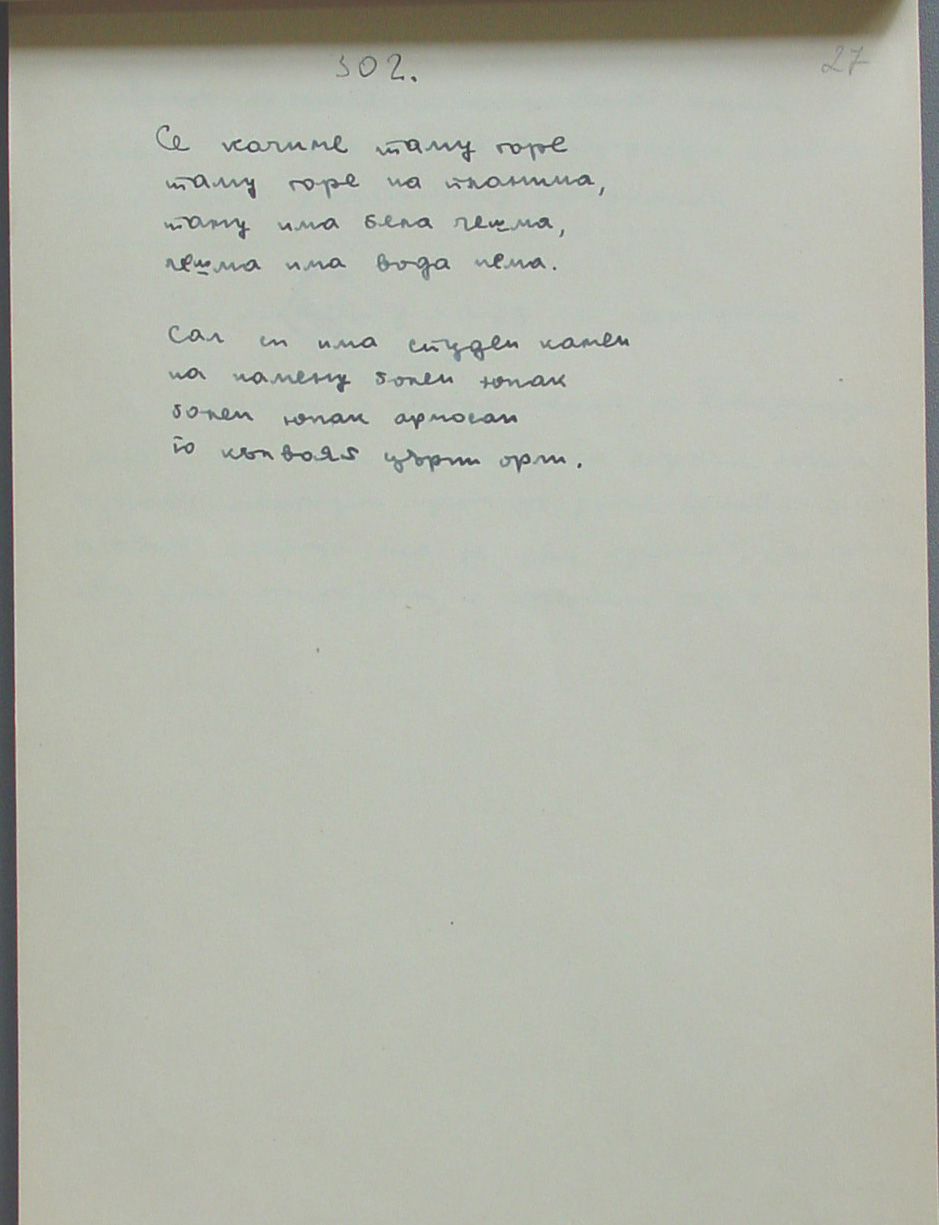 302.
27
Се качиме таму горе
таму горе на планина,
таму има бела чешма,
чешма има вода нема.
Сал си има студен камен
на камену болен юнак
болен юнак армосан
го църни орли.